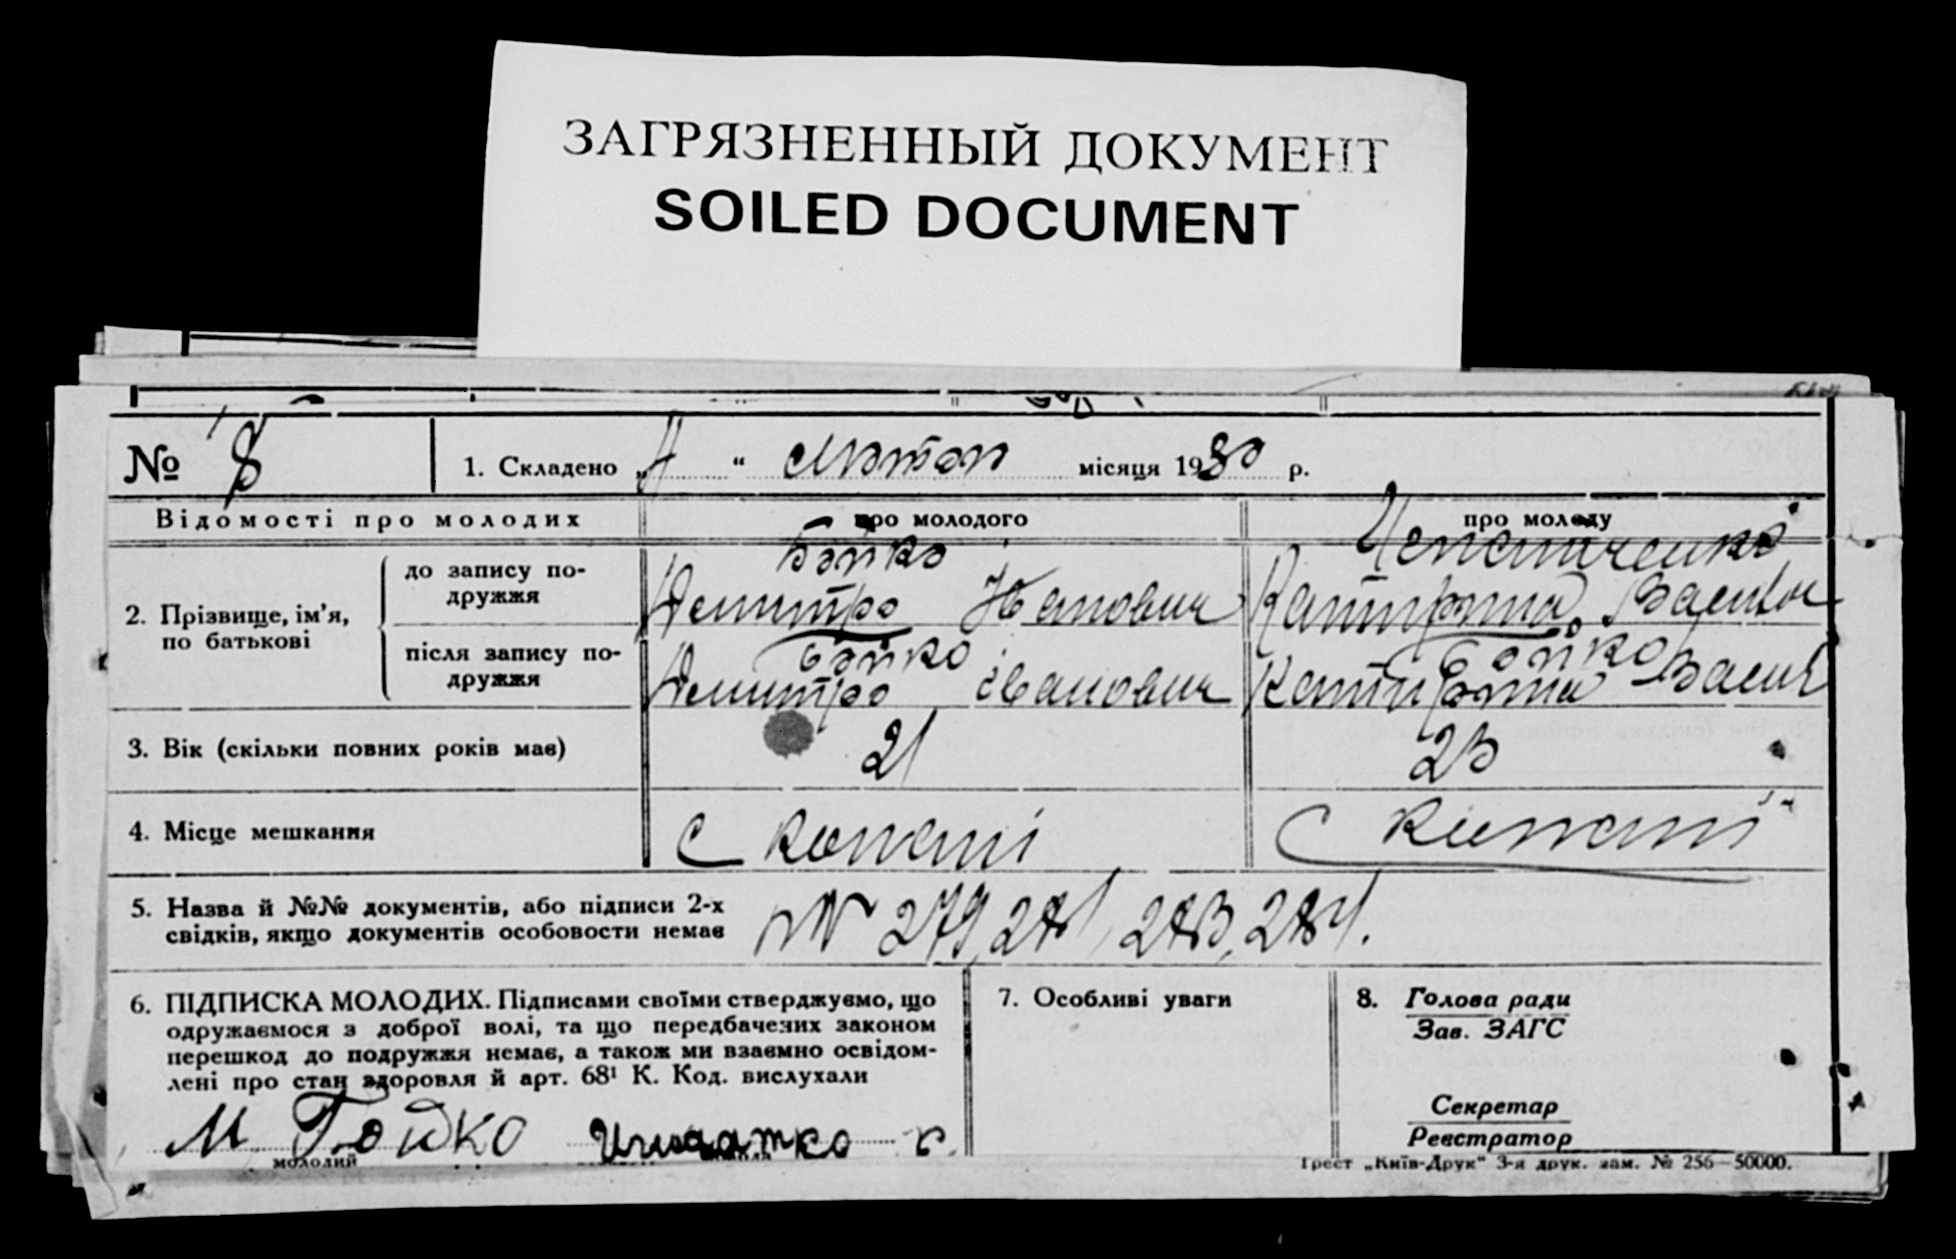 ЗАГРЯЗНЕННЫЙ ДОКУМЕНТ
SOILED DOCUMENT
№ 8
1. Складено „ “ місяця 1930 р.
Відомості про молодих
про молодого
про молоду
2. Прізвище, ім’я, по батькові
до запису по-
дружжя
Бойко
Дмитро Іванович
після запису по-
дружжя
Бойко
Дмитро Іванович
Бойко
3. Вік (скільки повних років має)
21
23
4. Місце мешкання
с Копані
с Копані
5. Назва й №№ документів, або підписи 2-х
свідків, якщо документів особовости немає
№ 279, 281, 283, 284.
6. ПІДПИСКА МОЛОДИХ. Підписами своїми стверджуємо, що
одружаємося з доброї волі, та що передбачених законом
перешкод до подружжя немає, а також ми взаємно освідом-
лені про стан здоровля й арт. 68¹ К. Код. вислухали
Бойко
молодий
7. Особливі уваги
8. Голова ради
Зав. ЗАГС
Секретар
Реєстратор
Трест „Київ-Друк“ 3-я друк. зам. № 256—50000.